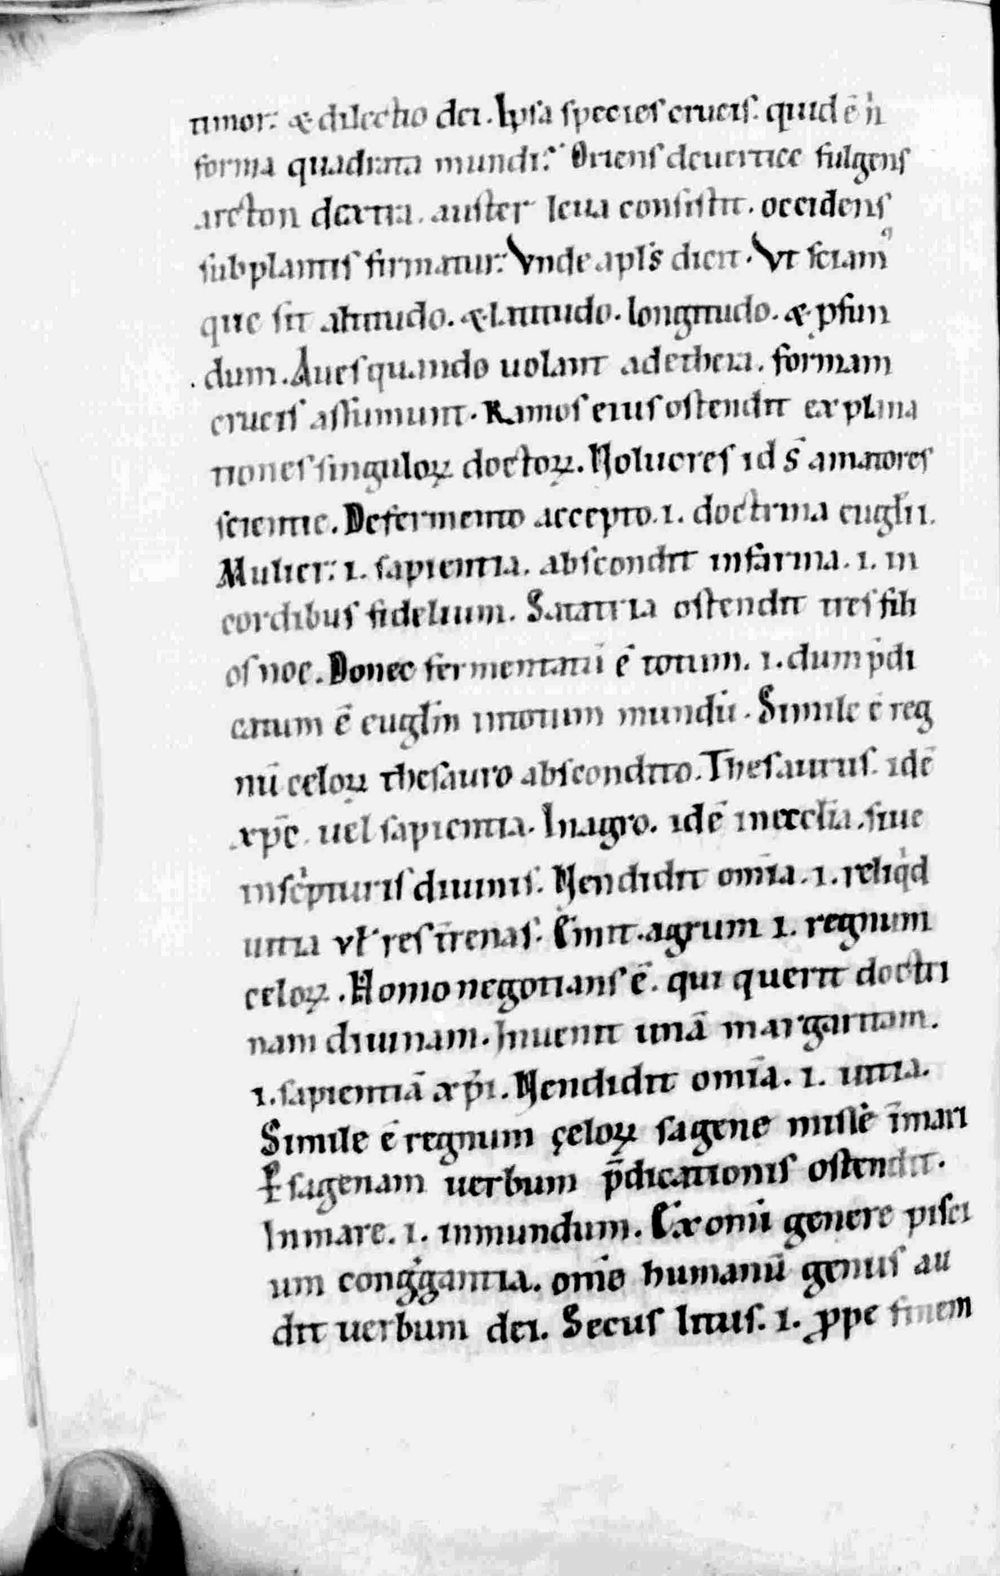 timor: & dilectio dei. Ipsa species crucis. quid ē n̉
forma quadrata mundi? Oriens deuertice fulgens
arcton dextra. auster leua consistit. occidens
subplantis firmatur: Vnde apl̄s dicit. Vt sciam᾽
que sit altitudo. & latitudo. longitudo. & ꝓfun
dum. Aues quando uolant ad ethera. formam
crucis assumunt. Ramos eius ostendit explana
tiones singuloꝝ doctoꝝ. Volucres id s̄ amatores
scientie. De fermento accepto .i. doctrina eugl̄ii.
Mulier: .i. sapientia. abscondit in farina .i. in
cordibus fidelium. Sata tria ostendit tres fili
os noe. Donec fermentatū ē totum .i. dum p̄di
catum ē eugl̄m intotum mundū. Simile ē reg
nū celoꝝ thesauro abscondito. Thesaurus. idē
xp̄c. uel sapientia. Inagro. idē ineccl̄ia. siue
inscⁱpturis diuinis. Vendidit om̄ia .i. reliqⁱd
uitia vł res t̄renas. Emit agrum .i. regnum
celoꝝ. Homo negotians ē. qui querit doctri
nam diuinam. Inuenit unā margaritam.
.i. sapientiā xp̄i. Vendidit om̄ia .i. uitia.
Simile ē regnum çeloꝝ sagene misse īmari
P̲ sagenam uerbum p̄dicationis ostendit.
Inmare .i. inmundum. Ex omī genere pisci
um congͣgantia. om̄e humanū genus au
dit uerbum dei. Secus litus .i. ꝓpe finem